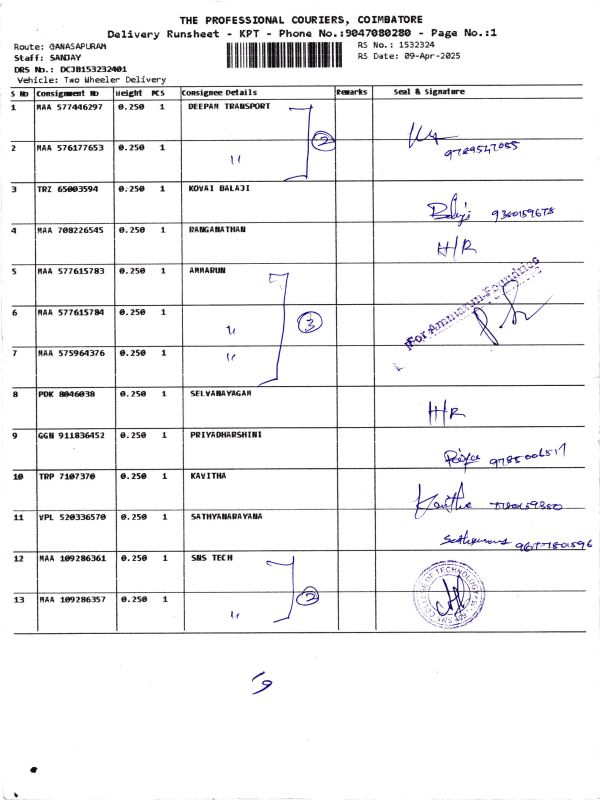 THE PROFESSIONAL COURIERS, COIMBATORE
Delivery Runsheet - KPT - Phone No.:9047080280 - Page No.:1
Route: GANASAPURAM RS No.: 1532324
Staff: SANJAY RS Date: 09-Apr-2025
DRS No.: DCJB153232401
Vehicle: Two Wheeler Delivery
S No Consignment No Weight PCS Consignee Details Remarks Seal & Signature
1 MAA 577446297 0.250 1 DEEPAM TRANSPORT
2
2 MAA 576177653 0.250 1 〃
3 TRZ 65003594 0.250 1 KOVAI BALAJI
Balaji
4 MAA 708226545 0.250 1 RANGANATHAN H/R
5 MAA 577615783 0.250 1 AMMARUN
For Ammarun Foundries
6 MAA 577615784 0.250 1 〃 3
7 MAA 575964376 0.250 1 〃
8 PDK 8046038 0.250 1 SELVANAYAGAM H/R
9 GGN 911836452 0.250 1 PRIYADHARSHINI
10 TRP 7107370 0.250 1 KAVITHA
Kavitha
11 VPL 520336570 0.250 1 SATHYANARAYANA
12 MAA 109286361 0.250 1 SNS TECH
SNS COLLEGE OF TECHNOLOGY
13 MAA 109286357 0.250 1 〃 2